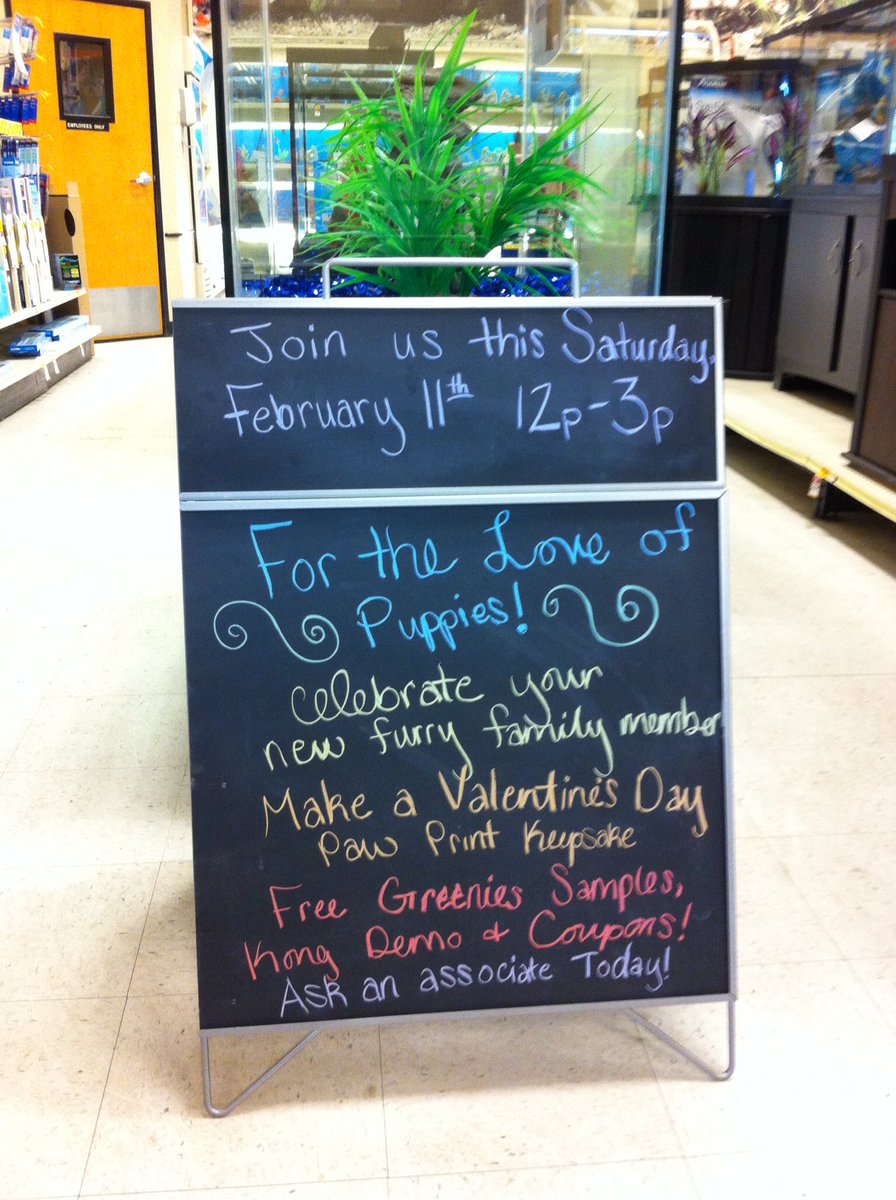 EMPLOYEES ONLY
Join us this Saturday,
February 11th 12p-3p
For the Love of
Puppies!
Celebrate your
new furry family member
Make a Valentine's Day
Paw Print Keepsake
Free Greenies Samples,
Kong Demo & Coupons!
Ask an associate Today!